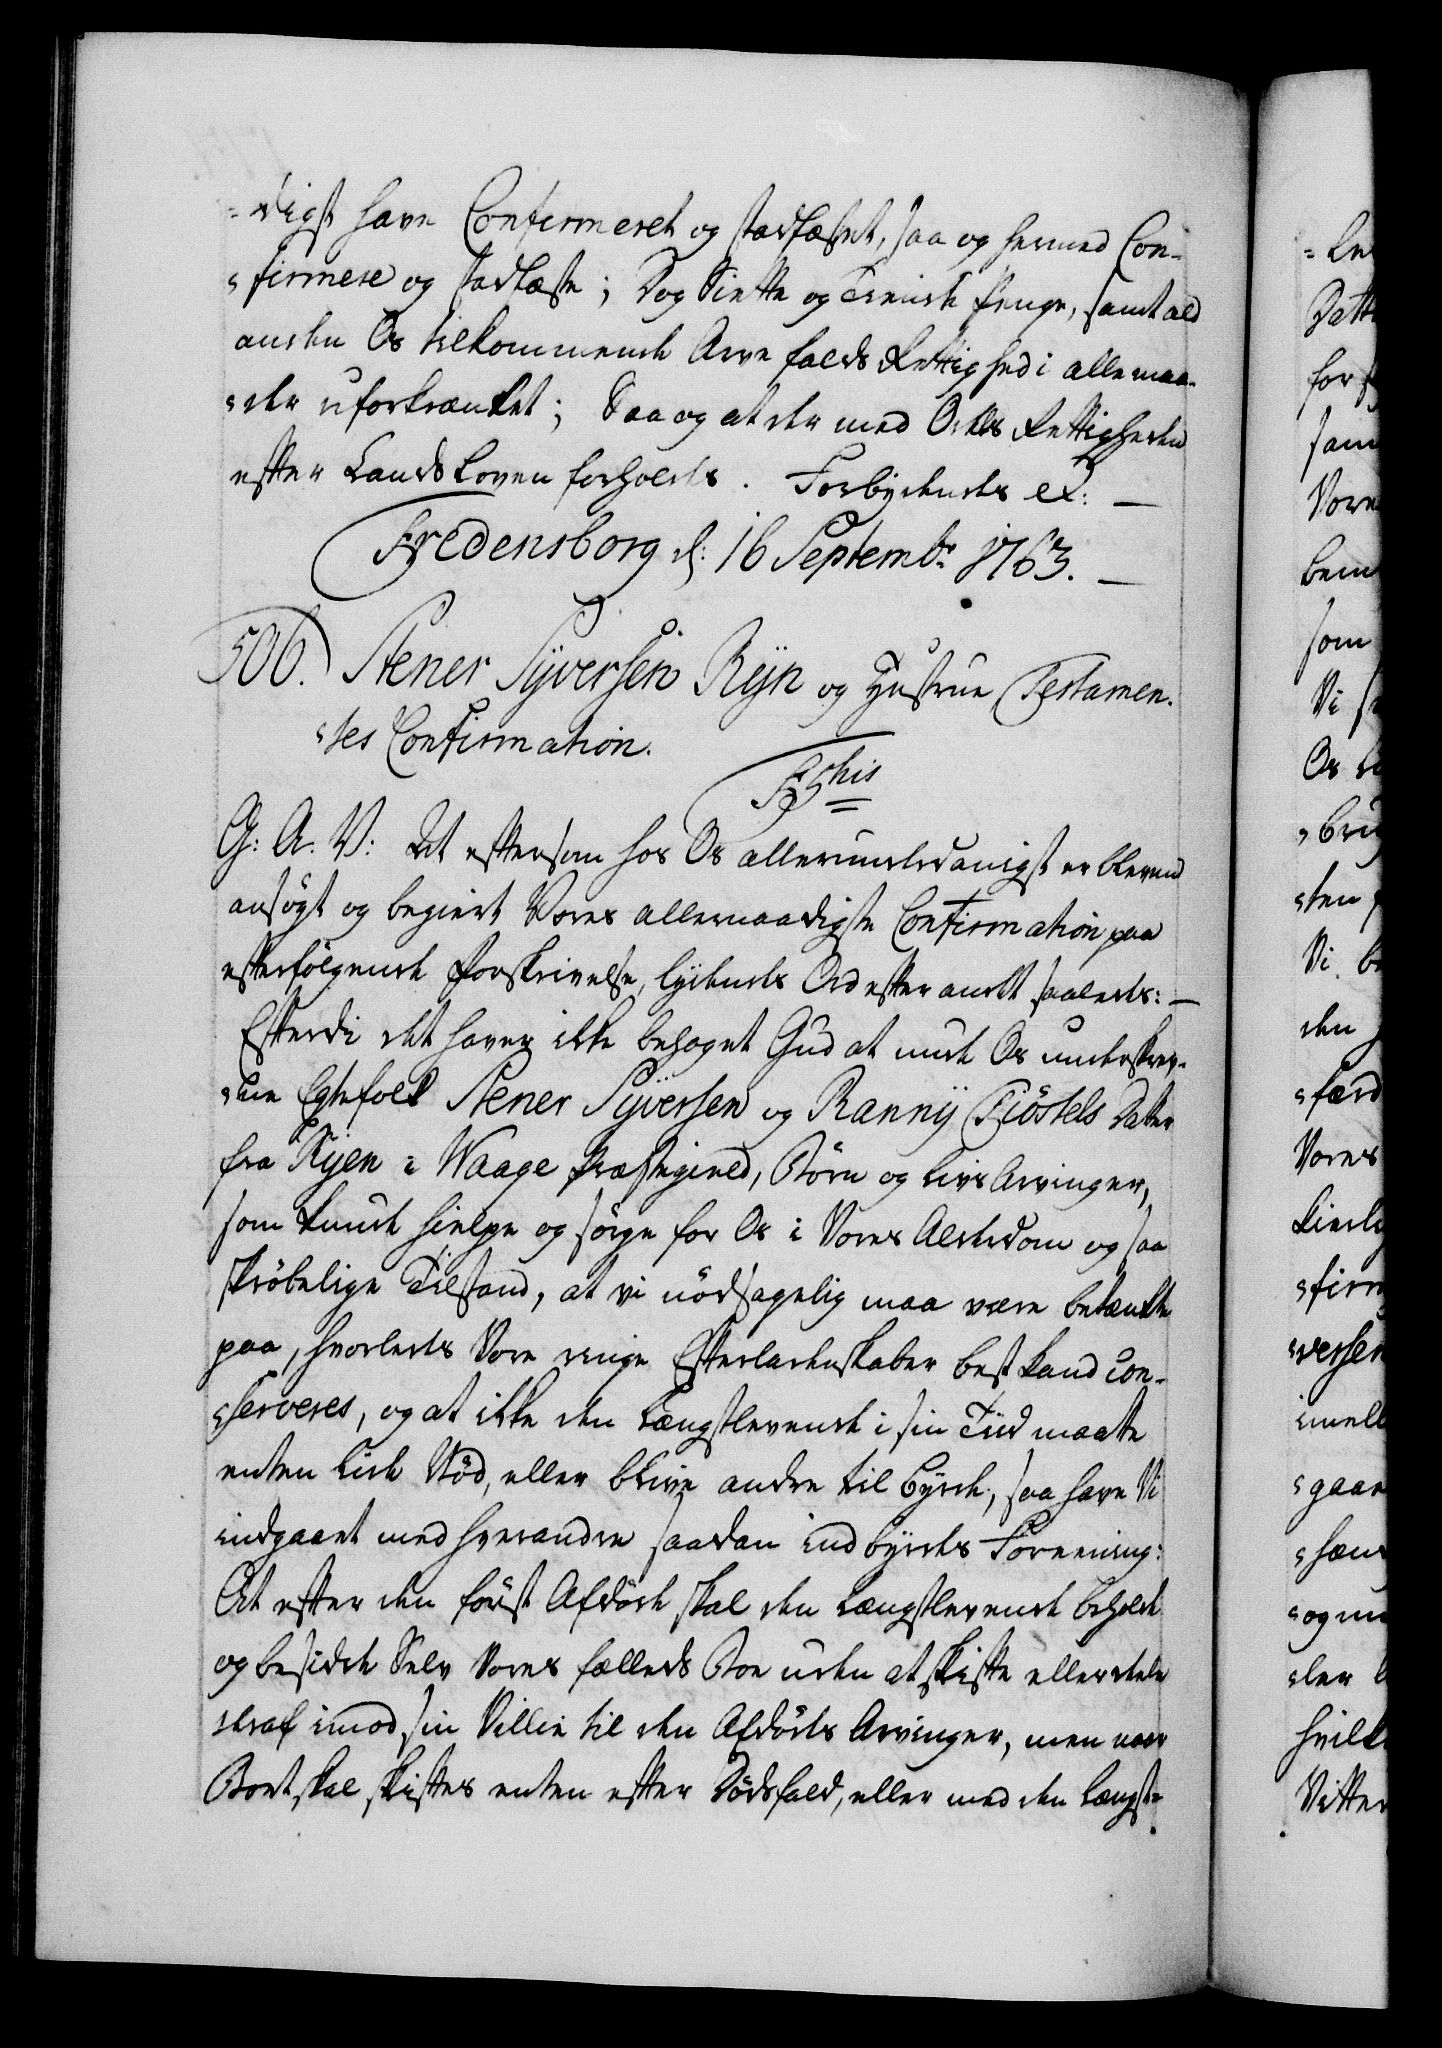 =digst have Confirmeret og stadfæstet, saa og hermed Con-
=firmere og stadfæste; Dog Siette og Tiende Penge, samt ald
anden Os tilkommende Arve falds Rettighed i alle maa-
=der uforkrænket; Saa og at der med Odels Rettigheden
efter Lands Loven forholdes. Forbydendes etc: —
Fredensborg d: 16 Septembr 1763. —
506. Stener Syversen Ryn og Hustrue Testamen-
=tes Confirmation.
G: A. V: At eftersom hos Os allerunderdanigst er bleven
ansøgt og begiert Vores allernaadigste Confirmation paa
efterfølgende Forskrivelse, lydendes Ord efter andet saaledes: —
Efterdi det haver ikke behaget Gud at unde Os underskrev-
=ne Egtefolk Stener Syversen og Ranny Tiöstels Datter
fra Ryen i Waage Præstegield, Børn og Livs Arvinger,
som kunde hielpe og sørge for Os i Vores Alderdom og saa
skrøbelige Tilstand, at vi nødsagelig maa være betænkte
paa, hvorledes Vore ringe Efterladenskaber best kand con-
=serveres, og at ikke den Længstlevende i sin Tiid maatte
enten Lide Nød, eller blive andre til Byrde, saa have Vi
indgaaet med hverandre saadan indbyrdes Forening:
At efter den først Afdøde skal den Længstlevende beholde
og besidde Selv Vores fælleds Boe uden at skifte eller deele
deraf imod sin Villie til den Afdødes Arvinger, men naar
Boet skal skiftes enten efter Dødsfald, eller med den Længst=